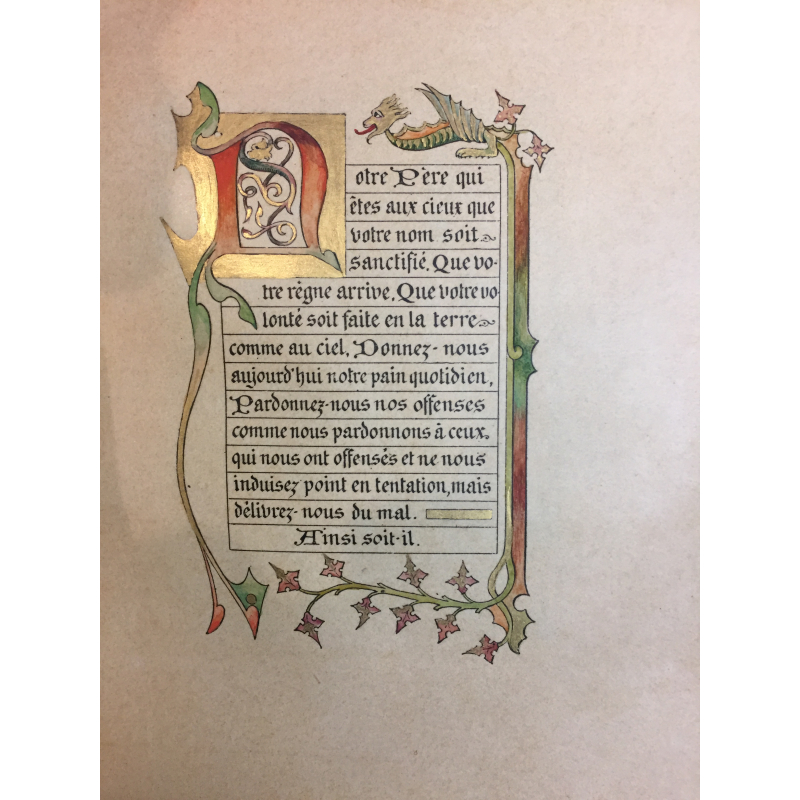 Notre Père qui
êtes aux cieux que
votre nom soit
sanctifié. Que vo-
tre règne arrive. Que votre vo
lonté soit faite en la terre
comme au ciel. Donnez-nous
aujourd'hui notre pain quotidien,
Pardonnez-nous nos offenses
comme nous pardonnons à ceux
qui nous ont offensés et ne nous
induisez point en tentation, mais
délivrez-nous du mal.
Ainsi soit-il.